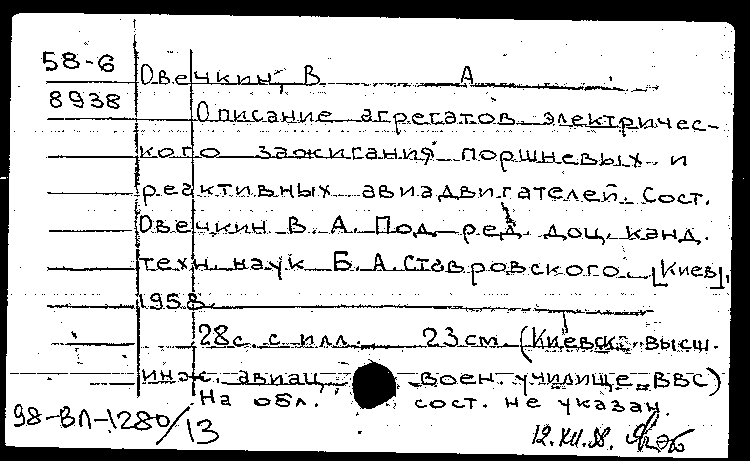 58-6
8938
Овечкин, В А
Описание агрегатов электричес-
кого зажигания поршневых и
реактивных авиадвигателей. Сост.
Овечкин В. А. Под ред. доц. канд.
техн. наук Б. А. Ставровского. [Киев],
1958.
28с. с илл. 23см. (Киевск. высш.
инж. авиац. воен. училище ВВС)
На обл. сост. не указан.
98-ВЛ-1280/13
12.XII.58.